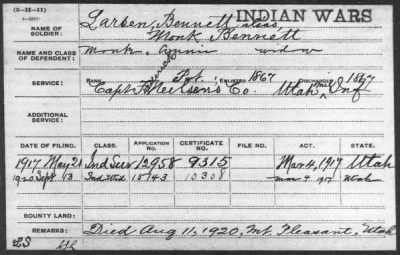 (3-II-II)
INDIAN WARS
NAME OF SOLDIER: Larsen, Bennett alias
Monk, Bennett
NAME AND CLASS OF DEPENDENT: Monk, Annie widow
SERVICE: RANK Pvt. ENLISTED 1867 DISCHARGED 1867
Capt. Neilsen's Co. Utah Mil Inf
ADDITIONAL SERVICE:
DATE OF FILING. CLASS. APPLICATION NO. CERTIFICATE NO. FILE NO. ACT. STATE.
1917 May 21 Ind Surv 12958 9315 Mar 4, 1917 Utah
1920 Sept 13 Ind Wid 15143 10308 Mar 4 1917 Utah
BOUNTY LAND:
REMARKS: Died Aug 11, 1920, Mt. Pleasant, Utah